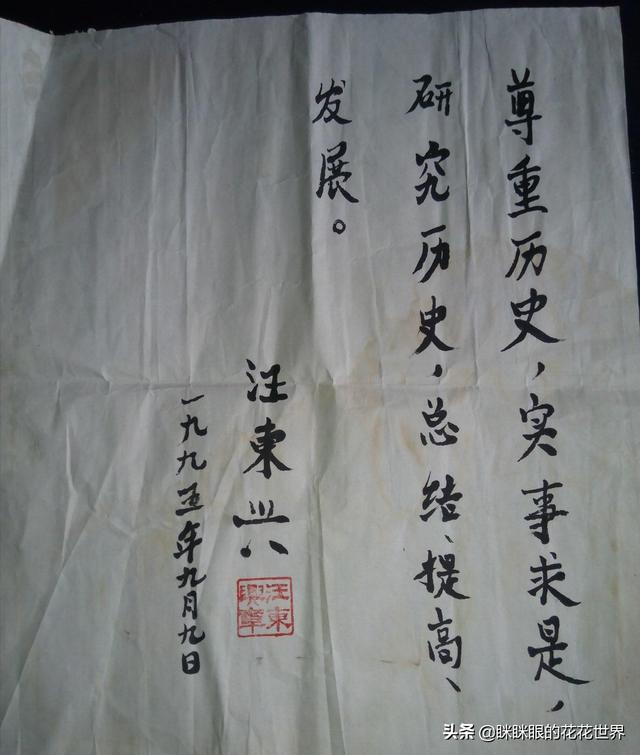 尊重历史，实事求是，
研究历史，总结、提高、
发展。
汪東兴
一九九五年九月九日
汪東
興章
头条 @眯眯眼的花花世界